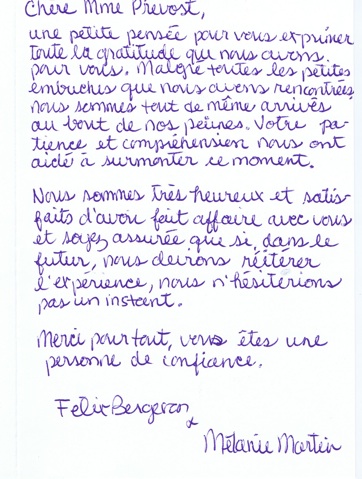 Chère Mme Prévost,
une petite pensée pour vous exprimer
toute la gratitude que nous avons
pour vous. Malgré toutes les petites
embuches que nous avons rencontrées
nous sommes tout de même arrivés
au bout de nos peines. Votre pa-
tience et compréhension nous ont
aidé à surmonter ce moment.
Nous sommes très heureux et satis-
faits d'avoir fait affaire avec vous
et soyez assurée que si, dans le
futur, nous devrions réitérer
l'expérience, nous n'hésiterions
pas un instant.
Merci pour tout, vous êtes une
personne de confiance.
Felix Bergeron
&
Mélanie Martin